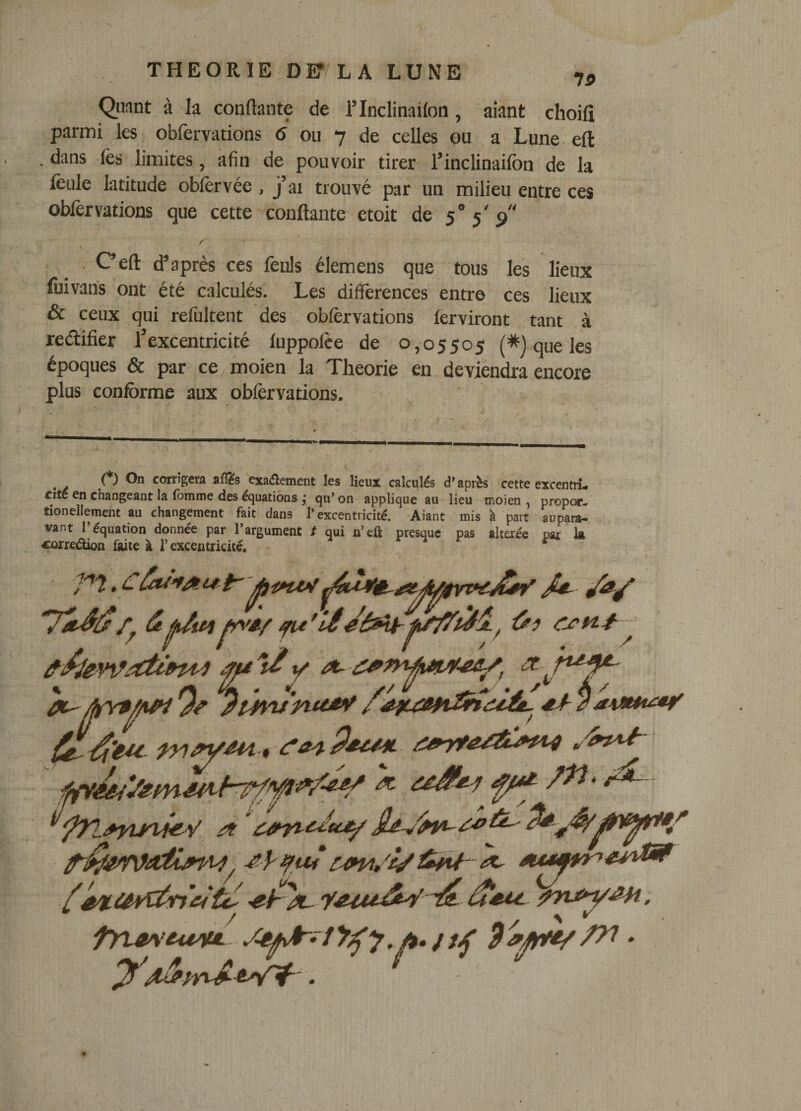 THEORIE DE LA LUNE 79
Quant à la conſtante de l'Inclinaiſon, aiant choiſi
parmi les obſervations 6 ou 7 de celles ou a Lune eſt
dans ſes limites, afin de pouvoir tirer l'inclinaiſon de la
ſeule latitude obſervée, j'ai trouvé par un milieu entre ces
obſervations que cette conſtante etoit de 5° 5′ 9″
C'eſt d'après ces ſeuls élemens que tous les lieux
ſuivans ont été calculés. Les differences entre ces lieux
& ceux qui reſultent des obſervations ſerviront tant à
rectifier l'excentricité ſuppoſée de 0,05505 (*) que les
époques & par ce moien la Theorie en deviendra encore
plus conforme aux obſervations.
(*) On corrigera aſſés exactement les lieux calculés d'après cette excentri-
cité en changeant la ſomme des équations; qu'on applique au lieu moien, propor-
tionellement au changement fait dans l'excentricité. Aiant mis à part aupara-
vant l'équation donnée par l'argument t qui n'eſt presque pas alterée par la
correction faite à l'excentricité.
M. Clairaut pour faire approcher ſes
Tables, le plus près qu'il étoit poſſible, des cent
obſervations qu'il y a comparées, a jugé
à propos de diminuer l'excentricité et d'avancer
le lieu moyen. ces deux corrections ſont
préciſement oppoſées à celles que M. le
Monnier a conclues de ſon coté de ſes propres
obſervations, et qui conſiſtent à augmenter
l'excentricité et à reculer le lieu moyen.
mercure Sept. 1757. p. 115 d'après M.
D'Alembert.